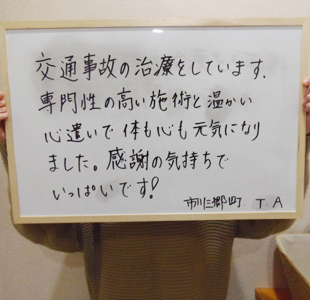 交通事故の治療をしています.
専門性の高い施術と温かい
心遣いで体も心も元気になり
ました。感謝の気持ちで
いっぱいです!
市川三郷町 T.A